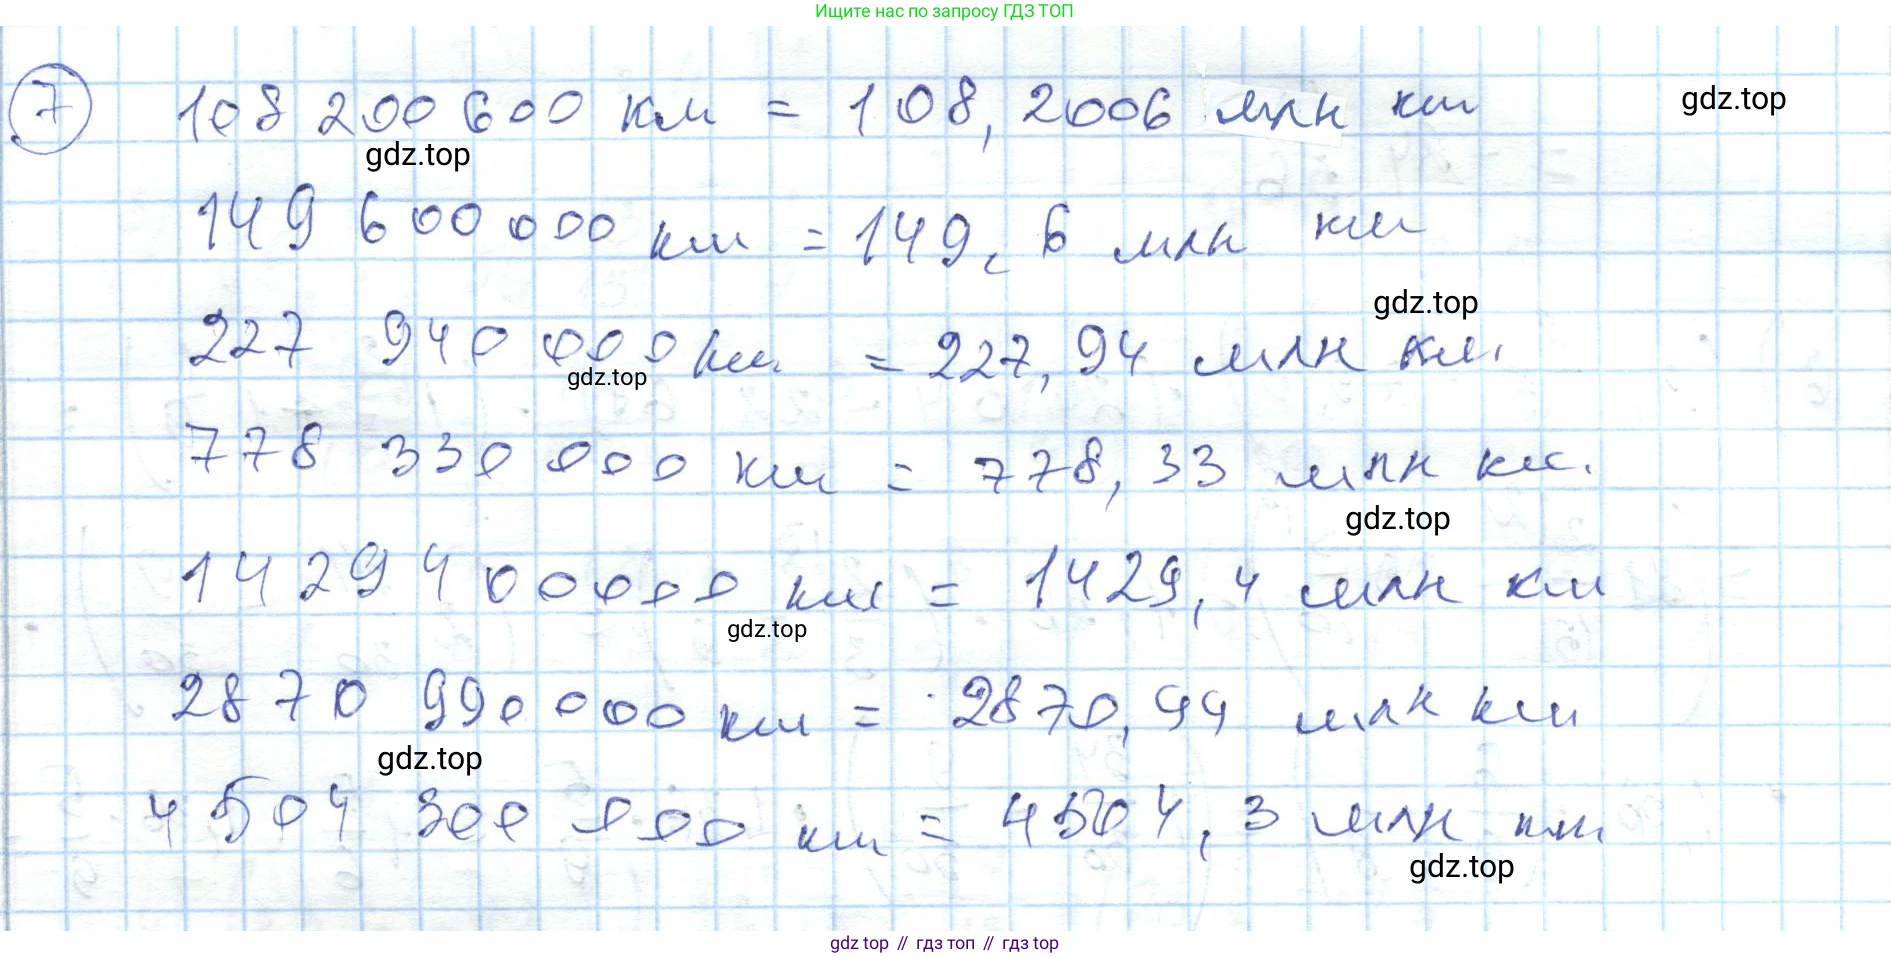 Ищите нас по запросу ГДЗ ТОП
7 108 200 600 км = 108, 2006 млн км
gdz.top
gdz.top
149 600 000 км = 149, 6 млн км
gdz.top
227 940 000 км = 227, 94 млн км.
gdz.top
778 330 000 км = 778, 33 млн км.
gdz.top
1429 400000 км = 1429, 4 млн км
gdz.top
2870 990 000 км = 2870, 99 млн км
gdz.top
4504 300 000 км = 4504, 3 млн км
gdz.top
gdz top // гдз топ // гдз top